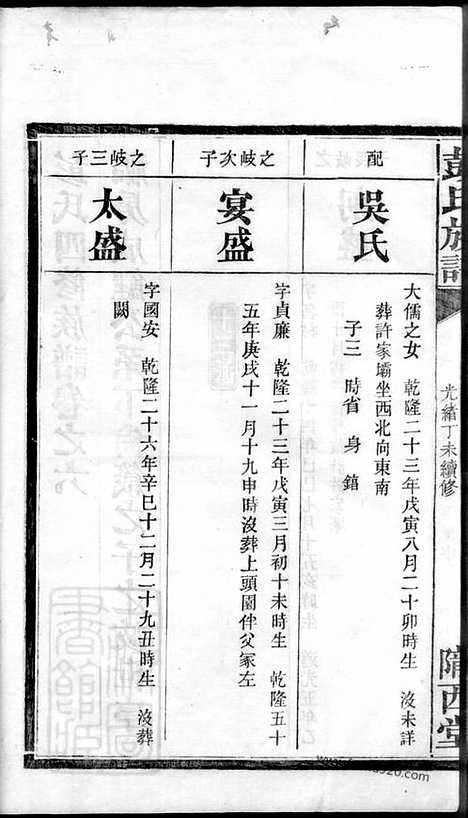 彭氏族譜
光緒丁未續修
隴西堂
配
吳氏
大儒之女 乾隆二十三年戊寅八月二十卯時生 沒未詳
葬許家壩坐西北向東南
子三 時省 身 錯
之岐次子
宴盛
字貞廉 乾隆二十三年戊寅三月初十未時生 乾隆五十
五年庚戌十一月十九申時沒葬上頭園伴父冢左
之岐三子
太盛
字國安 乾隆二十六年辛巳十二月二十九丑時生 沒葬
闕